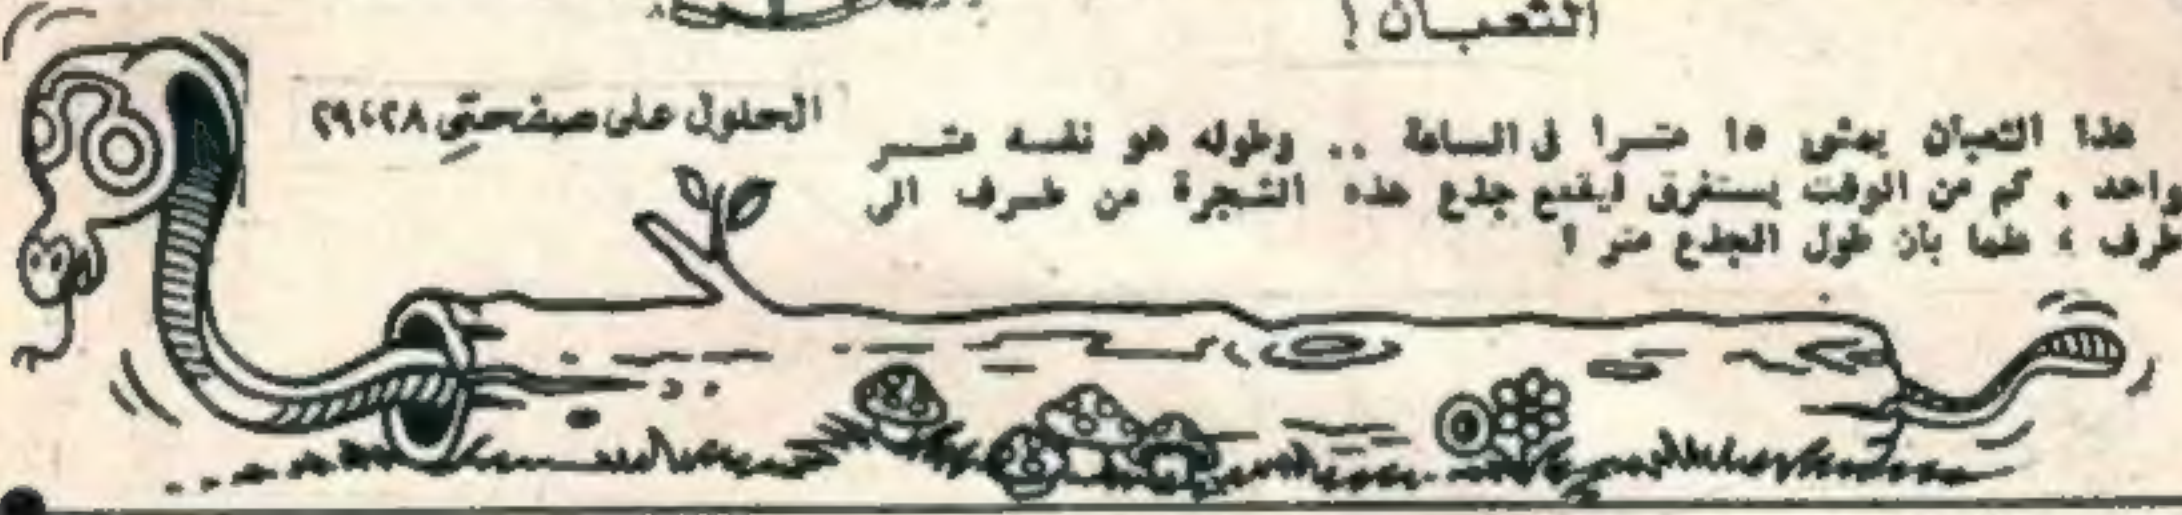 الثعبان !
هذا الثعبان يمشي ١٥ مترا في الساعة .. وطوله هو نفسه متر
واحد . كم من الوقت يستغرق ليقطع جذع هذه الشجرة من طرف الى
طرف ، علما بأن طول الجذع متر ؟
الحلول على صفحتي ٢٨ ، ٢٩